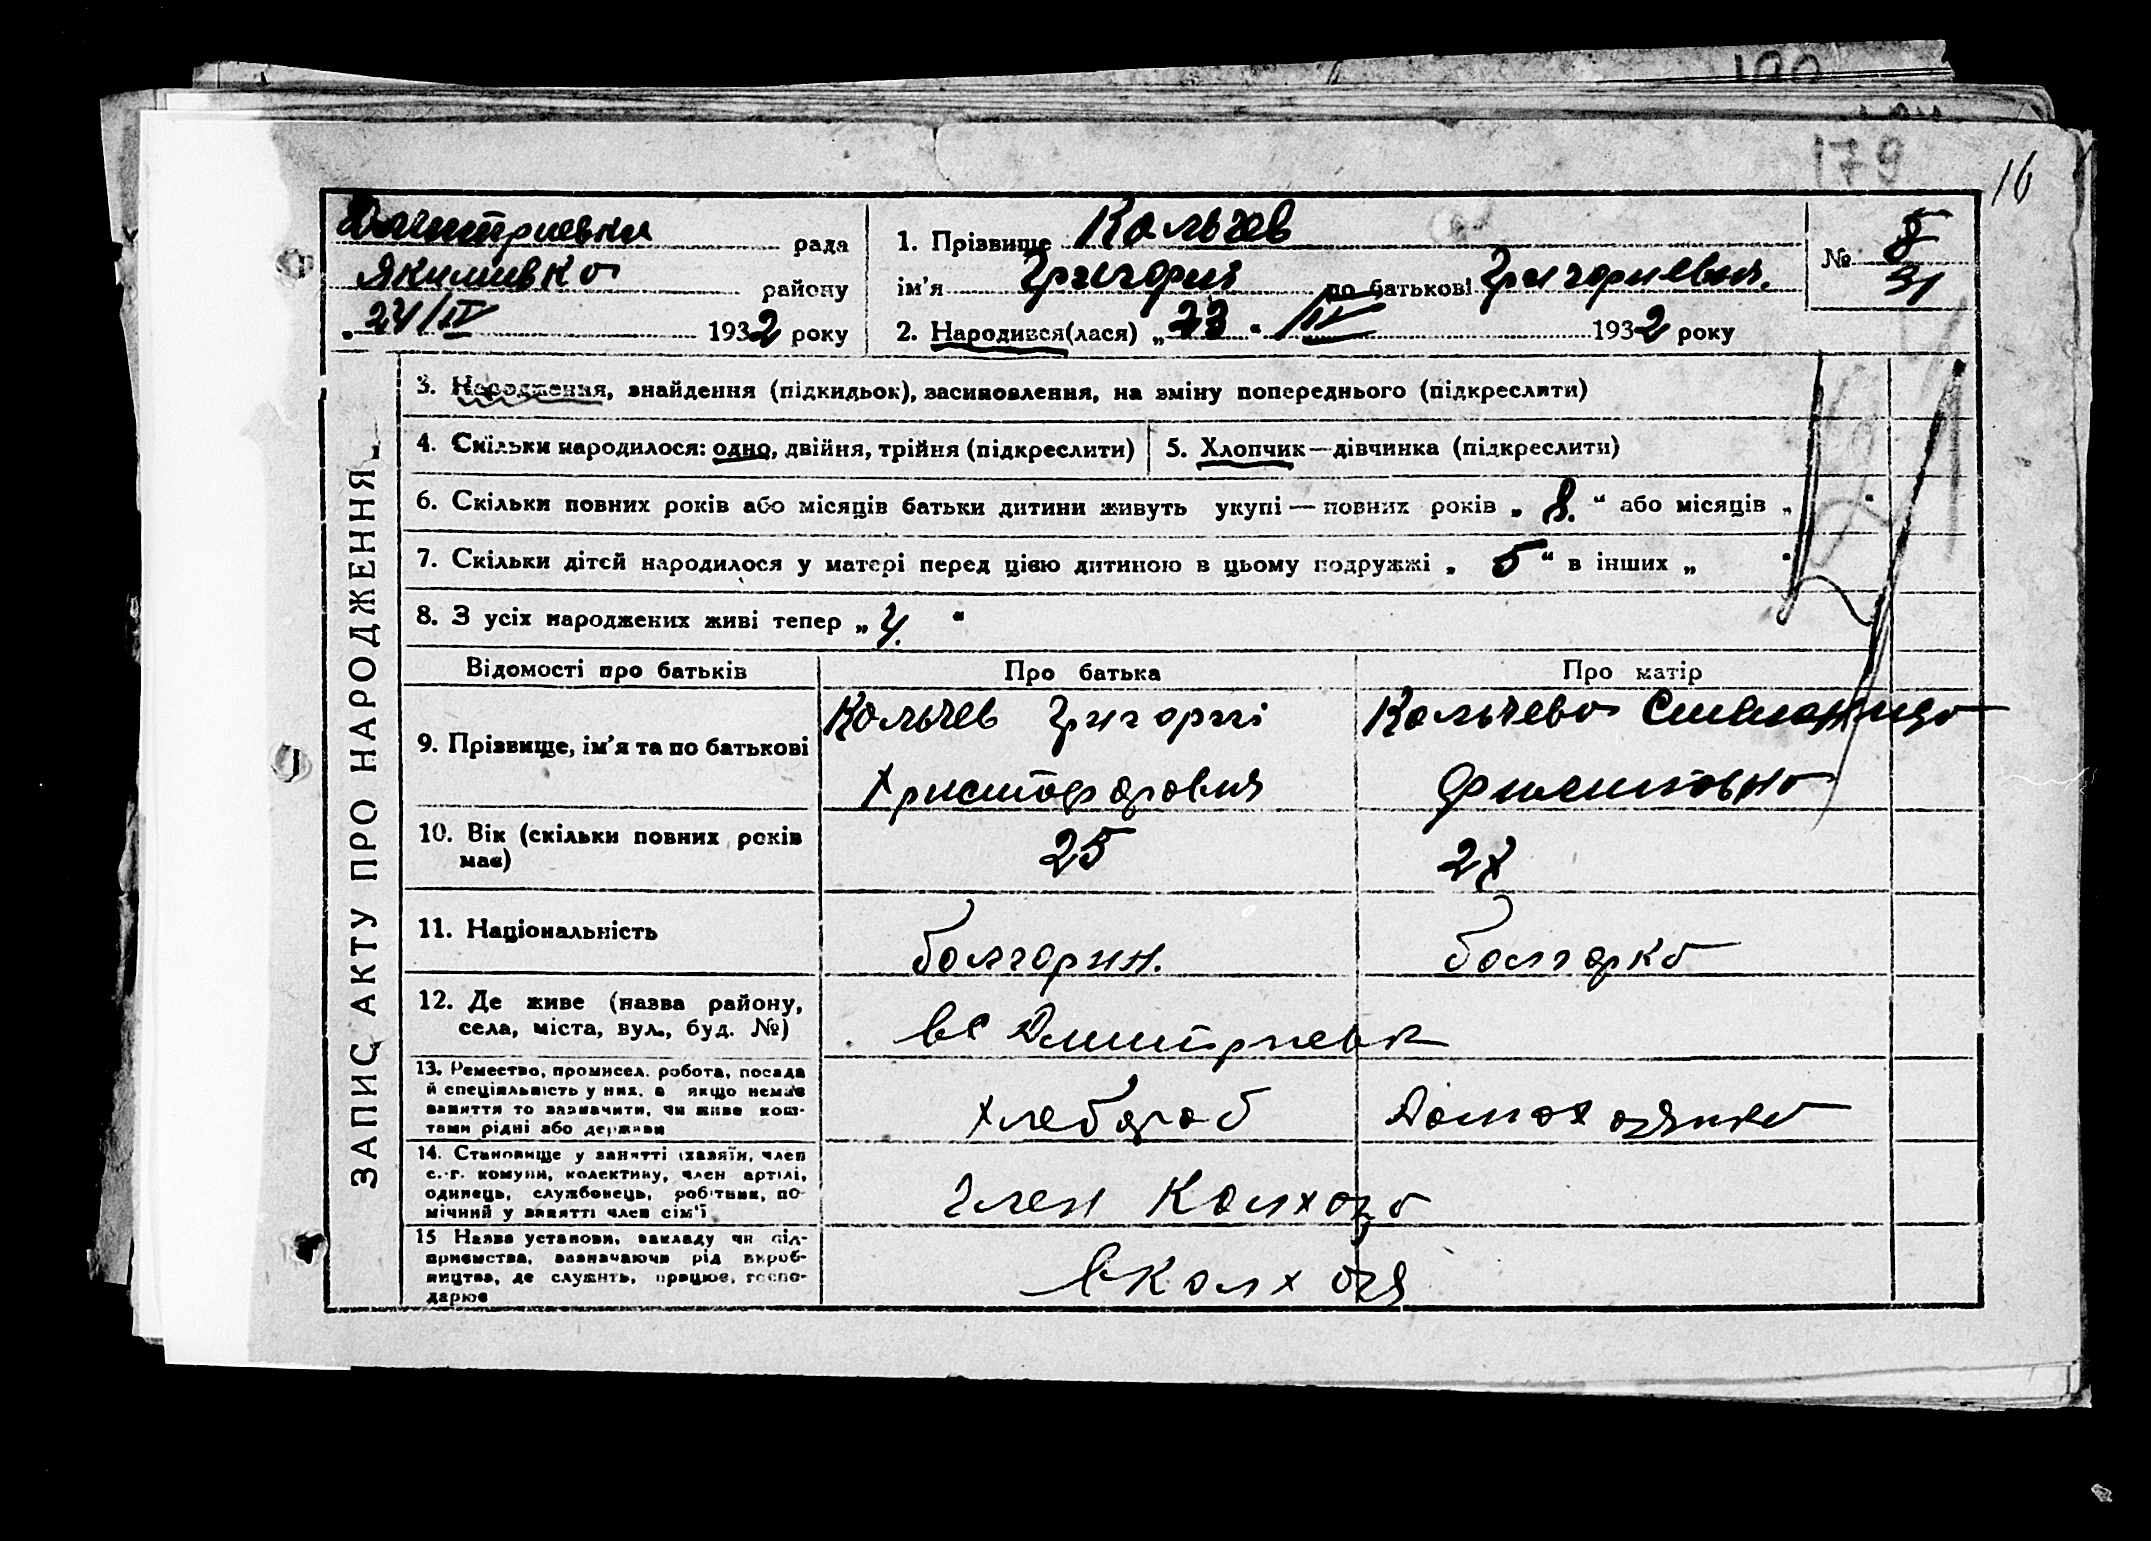 179
16
Дмитриевки рада
Якимивко району
„24/IV 1932 року
1. Прізвище Кольчев
ім'я Григорий по батькові Григориевич.
2. Народився(лася) „23“ IV 1932 року
№ 5
31
ЗАПИС АКТУ ПРО НАРОДЖЕННЯ
3. Народження, знайдення (підкидьок), засиновлення, на зміну попереднього (підкреслити)
4. Скільки народилося: одно, двійня, трійня (підкреслити)
5. Хлопчик—дівчинка (підкреслити)
6. Скільки повних років або місяців батьки дитини живуть укупі — повних років „8.“ або місяців „ “
7. Скільки дітей народилося у матері перед цією дитиною в цьому подружжі „5“ в інших „ “
8. З усіх народжених живі тепер „4.“
Відомості про батьків Про батька Про матір
9. Прізвище, ім'я та по батькові
Кольчев Григориі
Христофорович
Кольчева
Филиповно
10. Вік (скільки повних років
має)
25
11. Національність
болгорин.
болгорко
12. Де живе (назва району,
села, міста, вул., буд. №)
вс Дмитриевк
13. Ремество, промисел. робота, посада
й спеціяльність у них, а якщо немає
заняття то зазначити, чи живе кош-
тами рідні або держави
хлебороб
Домохозянко
14. Становище у занятті (хазяїн, член
с.-г. комуни, колективу, член артілі,
одинець, службовець, робітник, по-
мічний у занятті член сім'ї
Член Колхозо
15 Назва установи, закладу чи під-
приємства, зазначаючи рід вироб-
ництва, де служить, працює, госпо-
дарює
вколхозя